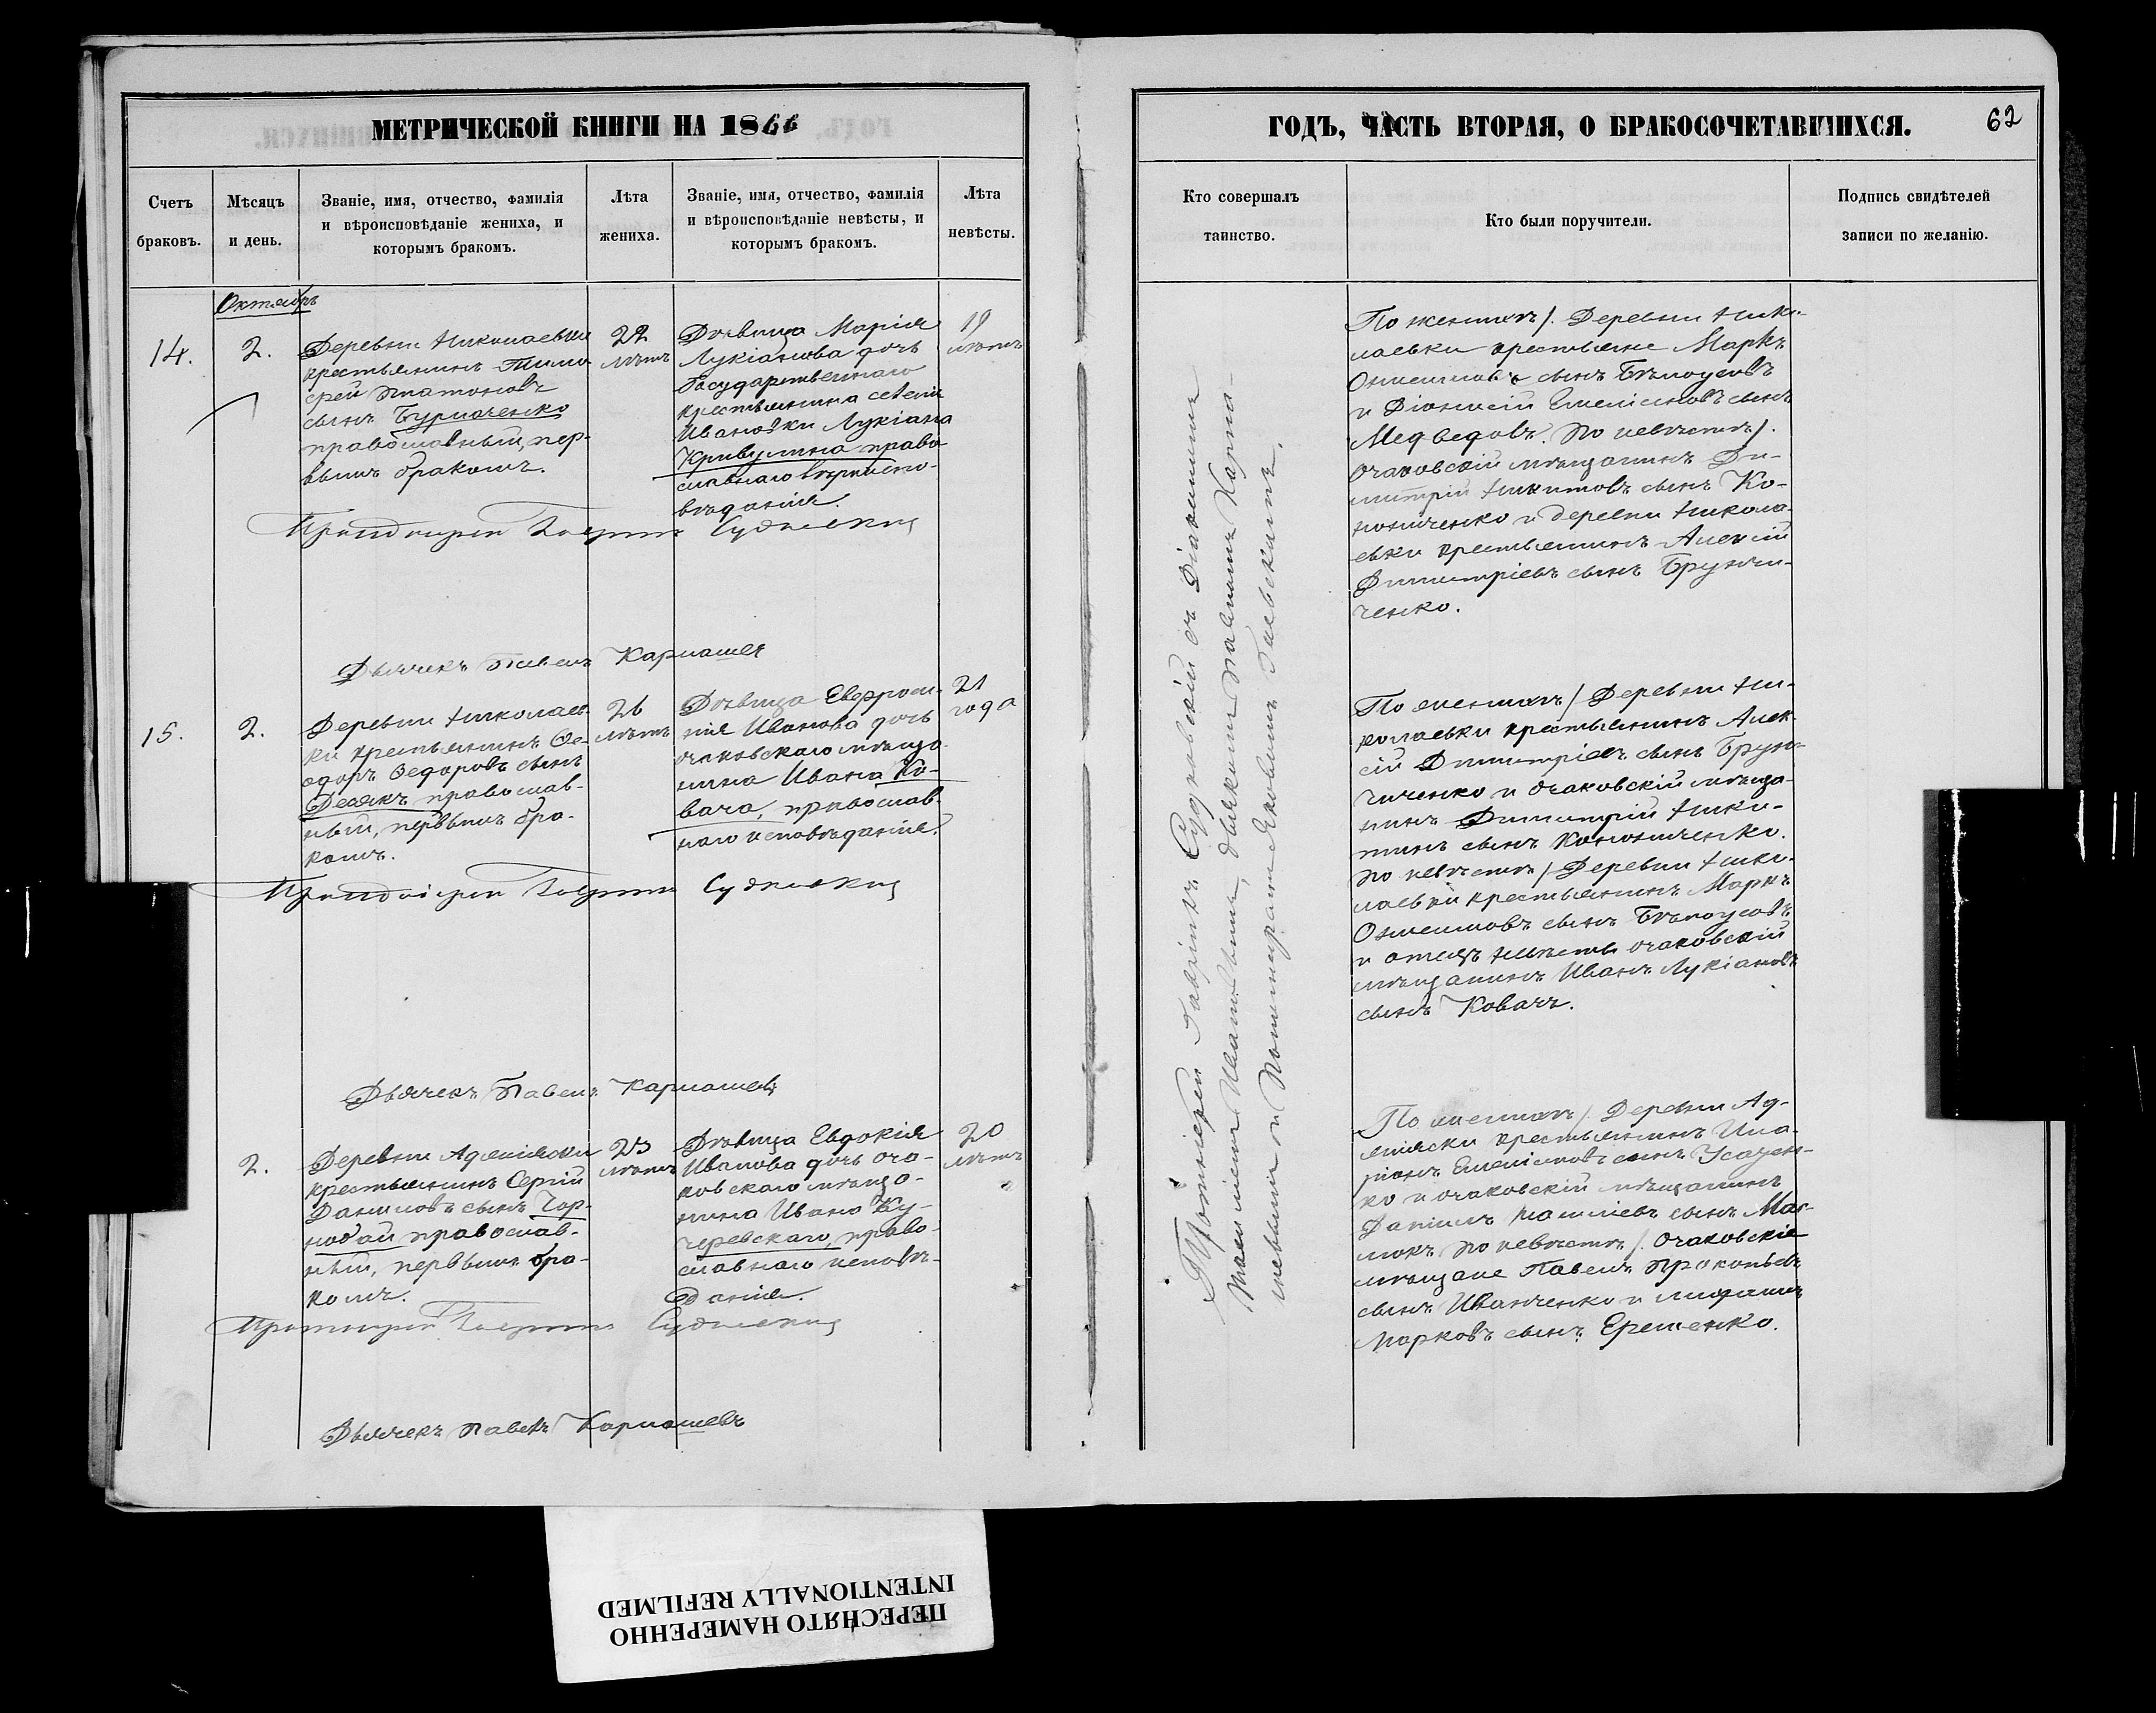 МЕТРИЧЕСКОЙ КНИГИ НА 1866
Счетъ браковъ.
Мѣсяцъ и день.
Званіе, имя, отчество, фамилія
и вѣроисповѣданіе жениха, и
которымъ бракомъ.
Лѣта жениха.
Званіе, имя, отчество, фамилія
и вѣроисповѣданіе невѣсты, и
которымъ бракомъ.
Лѣта невѣсты.
Октябрь
14.
2.
Деревни Николаевки
крестьянинъ Тимо
фей Платоновъ
сынъ Бурлаченко
православный, пер-
вымъ бракомъ.
22
лѣтъ
Дѣвица Марія
Лукіанова дочь
Государственнаго
крестьянина селенія
Ивановки Лукіана
Кривулина право
славнаго вѣроиспо-
вѣданія.
19
лѣтъ
Протоіерей Гавріилъ Судковскій
Дьячекъ Павелъ Карпашев
15.
2.
Деревни Николаев-
ки крестьянинъ Ѳе-
одоръ Ѳедоровъ сынъ
православ-
ный, первымъ бра-
комъ.
26
лѣтъ
Дѣвица Евфроси-
нія Иванова дочь
очаковскаго мѣща-
нина Ивана Ко-
вача, православ-
наго исповѣданія.
21
года
Протоіерей Гавріилъ Судковскій
Дьячекъ Павелъ Карпашевъ
2.
Деревни Аджіяски
крестьянинъ Сергій
Даниловъ сынъ Чор-
нобай православ-
ный, первымъ бра-
комъ.
25
лѣтъ
Дѣвица Евдокія
Иванова дочь оча-
ковскаго мѣща-
нина Ивана Ку-
черевскаго, право-
славнаго исповѣ-
данія.
20
лѣтъ
Протоіерей Гавріилъ Судковскій
Дьячекъ Павелъ Карпашевъ
ГОДЪ, ЧАСТЬ ВТОРАЯ, О БРАКОСОЧЕТАВШИХСЯ.
62
Кто совершалъ таинство.
Кто были поручители.
Подпись свидѣтелей
записи по желанію.
Протоіерей Гавріилъ Судковскій съ Діакономъ
дьячкомъ Павломъ Карпа-
шевымъ и Пономаремъ Яковомъ
По женихѣ/. Деревни Нико-
лаевки крестьяне Маркъ
сынъ Бѣлоусовъ
и Діонисій Емеліановъ сынъ
Медведовъ. По невѣстѣ/.
Очаковскій мѣщанинъ Ди-
митрій Никитовъ сынъ Ко-
нониченко и деревни Никола-
евки крестьянинъ Алексій
Димитріевъ сынъ Брунчи-
ченко.
По женихѣ/ Деревни Ни-
колаевки крестьянинъ Алек-
сій Димитріевъ сынъ Брун-
чиченко и очаковскій мѣща-
нинъ Димитрій Ники-
тинъ сынъ Конониченко.
По невѣстѣ/ Деревни Нико-
лаевки крестьянинъ Маркъ
сынъ Бѣлоусовъ
и отецъ невѣсты очаковскій
мѣщанинъ Иванъ Лукіановъ
сынъ Ковачъ.
По женихѣ/. Деревни Ад-
жіяски крестьянинъ Ила-
ріонъ Емеліановъ сынъ Усачен-
ко и очаковскій мѣщанинъ
Даніилъ сынъ
По невѣстѣ/. Очаковскіе
мѣщане Павелъ Прокопьевъ
сынъ Иванченко и
Марковъ сынъ Еременко.
ПЕРЕСНЯТО НАМЕРЕННО
INTENTIONALLY REFILMED